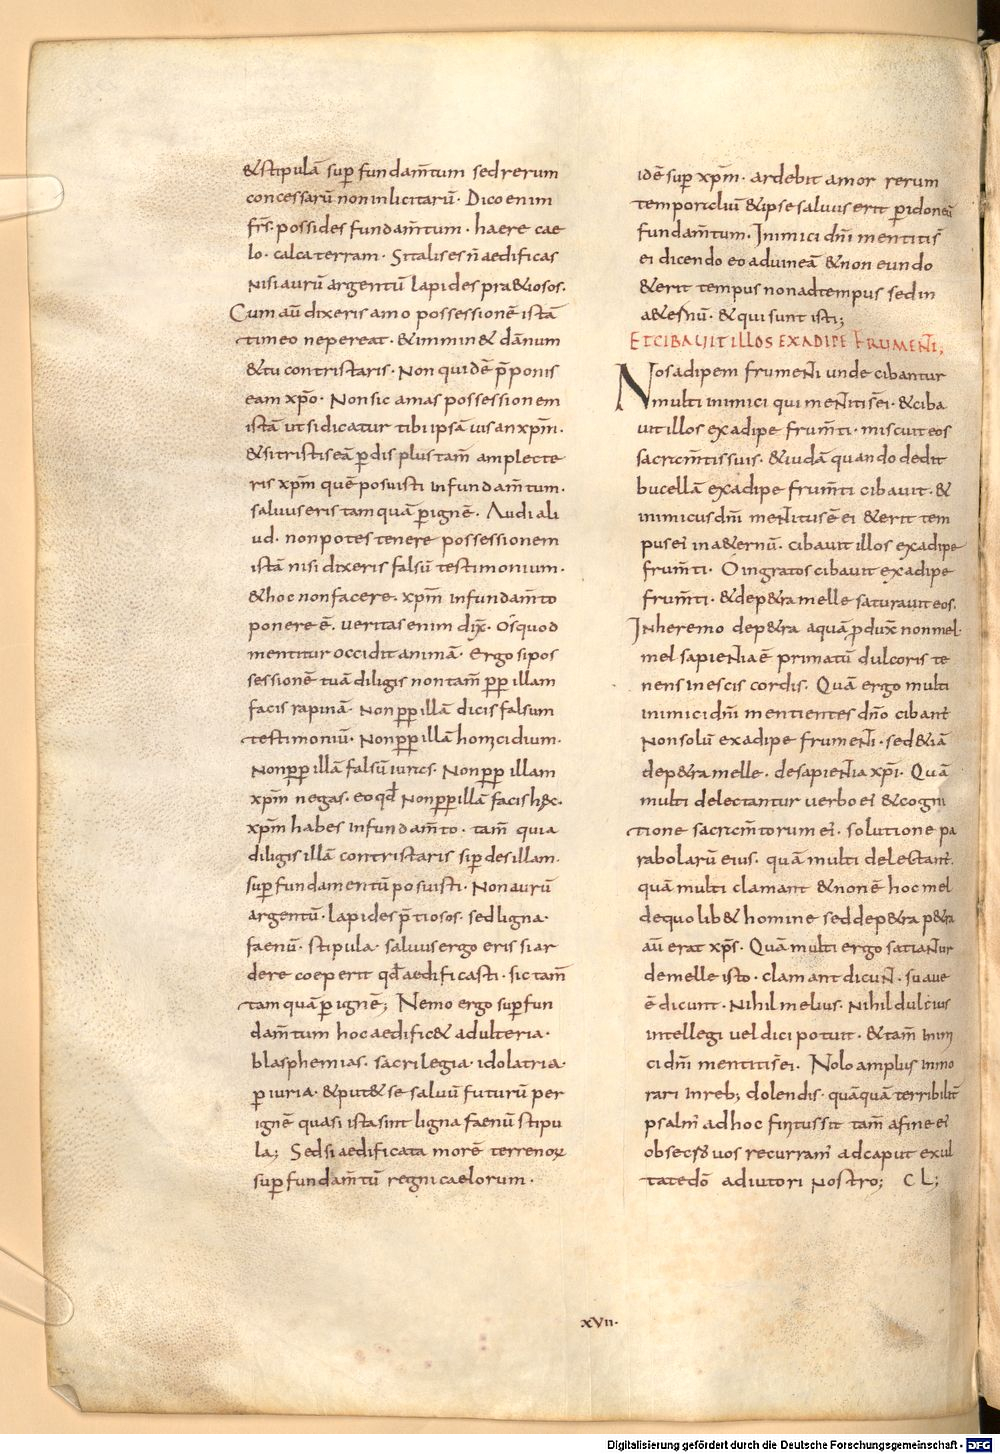 &stipulā sup̄ fundam̄tum sed rerum
concessarū non inlicitarū. Dico enim
fr̄s. possides fundam̄tum. haere cae
lo. calca terram. Si talis es n̄ aedificas
nisi aurū argentū lapides pra&iosos.
Cum aū dixeris amo possessionē istā
timeo ne pereat. &immin& dānum
&tu contristaris. Non quidē p̄ponis
eam xp̄o. Non sic amas possessionem
istā ut si dicatur tibi ipsā uis an xp̄m.
&si tristis eā p̄dis plus tam̄ amplecte
ris xp̄m quē posuisti in fundam̄tum.
saluus eris tamquā p̄ ignē. Audi ali
ud. non potes tenere possessionem
istā nisi dixeris falsū testimonium.
&hoc non facere. xp̄m in fundam̄to
ponere ē. ueritas enim dix̄. Os quod
mentitur occidit animā. Ergo si pos
sessionē tuā diligis non tam̄ pp̄ illam
facis rapinā. Non pp̄ illā dicis falsum
testimoniū. Non pp̄ illā homicidium.
Non pp̄ illā falsū iuras. Non pp̄ illam
xp̄m negas. eo qd̄ Non pp̄ illā facis hęc.
xp̄m habes in fundam̄to. tam̄ quia
diligis illā contristaris si p̄des illam.
sup̄ fundamentū posuisti. Non aurū
argentū. lapides p̄tiosos. sed ligna.
faenū. stipula. saluus ergo eris si ar
dere coeperit qd̄ aedificasti. sic tam̄
tamquā p̄ ignē; Nemo ergo sup̄ fun
dam̄tum hoc aedific& adulteria.
blasphemias. sacrilegia. idolatria.
p̄iuria. &put& se saluū futurū per
ignē quasi ista sint ligna faenū stipu
la; Sed si aedificata morē terrenoꝝ
sup̄ fundam̄tū regni caelorum.
idē sup̄ xp̄m. ardebit amor rerum
temporaliū &ipse saluus erit p̄ idoneū
fundam̄tum. Inimici dn̄i mentiti s̄
ei dicendo eo ad uineā &non eundo
&erit tempus non ad tempus sed in
a&ernū. &qui sunt isti;
ET CIBAUIT ILLOS EX ADIPE FRUMENTI;
Nos adipem frumenti unde cibantur
multi inimici qui mentiti s̄ ei. &ciba
uit illos ex adipe frum̄ti. miscuit eos
sacram̄tis suis. &iudā quando dedit
bucellā ex adipe frum̄ti cibauit. &
inimicus dn̄i mentitus ē ei &erit tem
pus ei in a&ernū. cibauit illos ex adipe
frum̄ti. O ingratos cibauit ex adipe
frum̄ti. &de p&ra melle saturauit eos.
In heremo de p&ra aquā p̄dux̄ non mel.
mel sapientia ē primatū dulcoris te
nens in escis cordis. Quā ergo multi
inimici dn̄i mentientes dn̄o cibant̄
Non solū ex adipe frumenti. sed &iā
de p&ra melle. de sapientia xp̄i. Quā
multi delectantur uerbo ei &cogni
tione sacram̄torum ei. solutione pa
rabolarū eius. quā multi delectant̄.
quā multi clamant &non ē hoc mel
de quolib& homine sed de p&ra p&ra
aū erat xp̄s. Quā multi ergo satiantur
de melle isto. clamant dicunt. suaue
ē dicunt. Nihil melius. Nihil dulcius
intellegi uel dici potuit. &tam̄ inimi
ci dn̄i mentiti s̄ ei. Nolo amplius inmo
rari in reb; dolendis. quāquā terribilit̄
psalm̄ ad hoc finitus sit tam̄ a fine ei
obsecro uos recurram̄ ad caput exul
tate dō adiutori nostro; CL;
xVii.
Digitalisierung gefördert durch die Deutsche Forschungsgemeinschaft - DFG